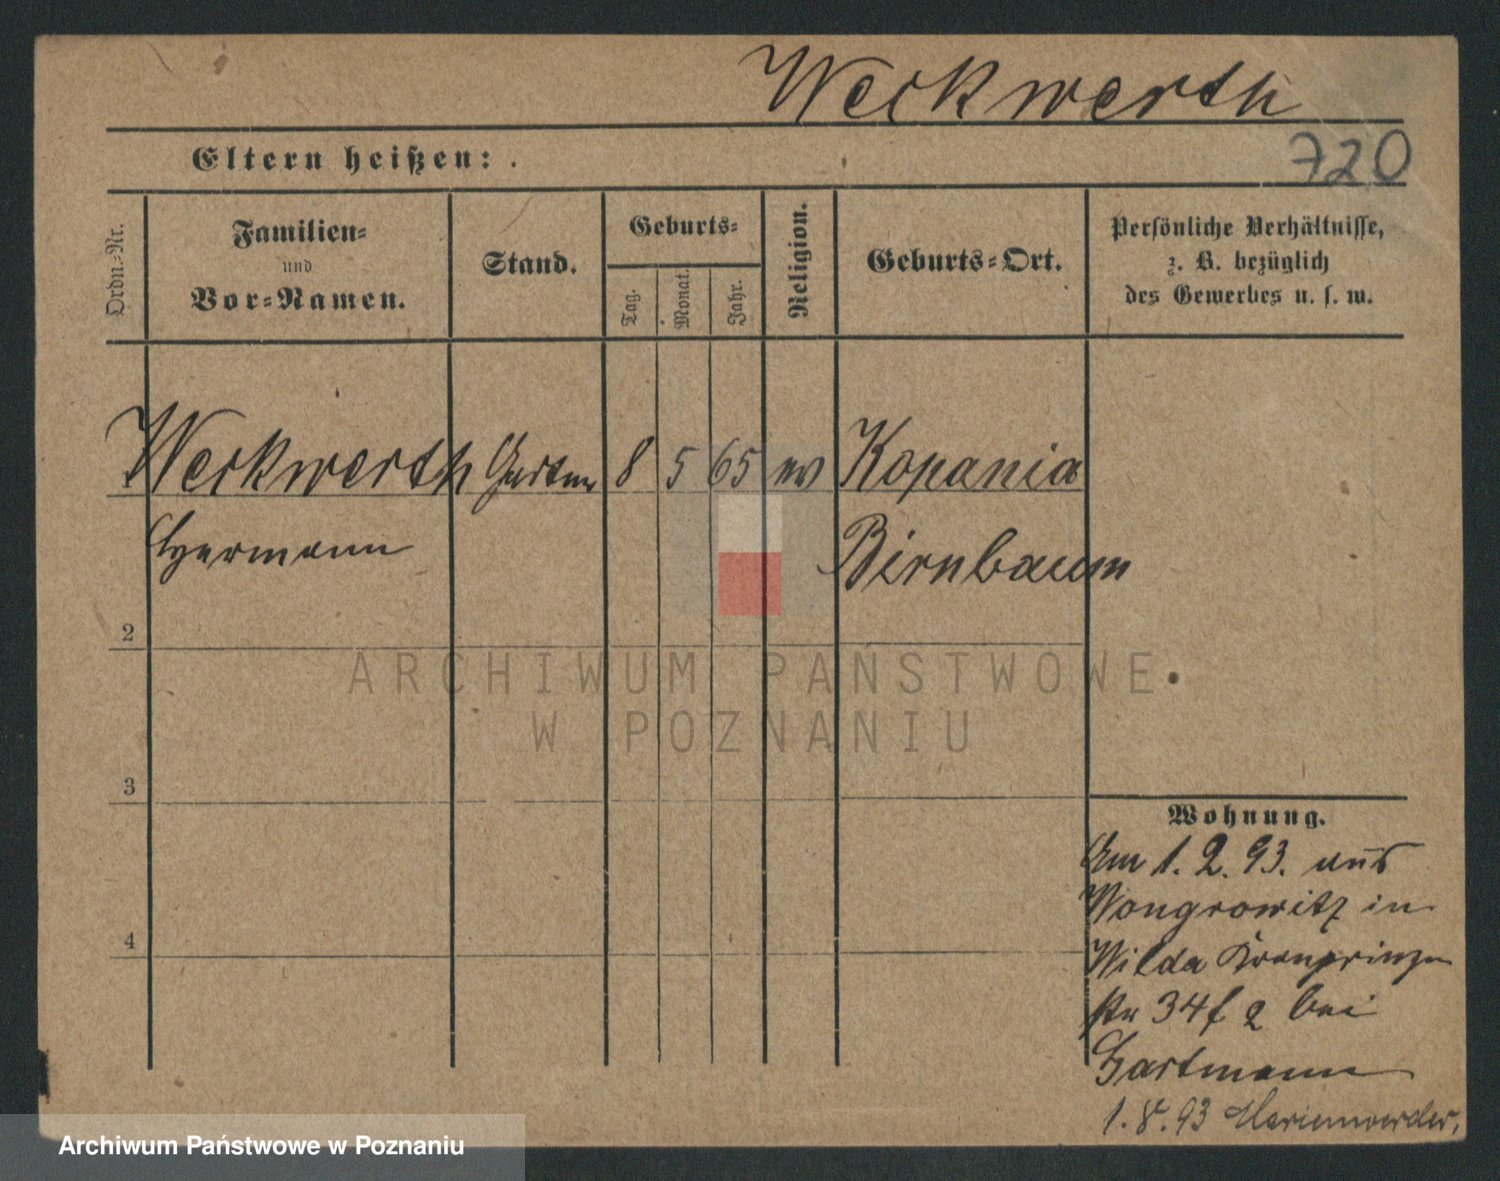 Weckwerth
Eltern heißen:
720
Ordn.-Nr.
Familien-
und
Vor-Namen.
Stand.
Geburts-
Tag.
Monat.
Jahr.
Religion.
Geburts-Ort.
Persönliche Verhältnisse,
z. B. bezüglich
des Gewerbes u. s. w.
1 Weckwerth 8 5 65 ev Kopania
Hermann Birnbaum
2
3
4
Wohnung.
Am 1. 2. 93. aus
Wongrowitz in
Wilda Kronprinzen
str 34f 2 bei
Hartmann
1. 8. 93 Marienwerder.
ARCHIWUM PAŃSTWOWE
W POZNANIU
Archiwum Państwowe w Poznaniu